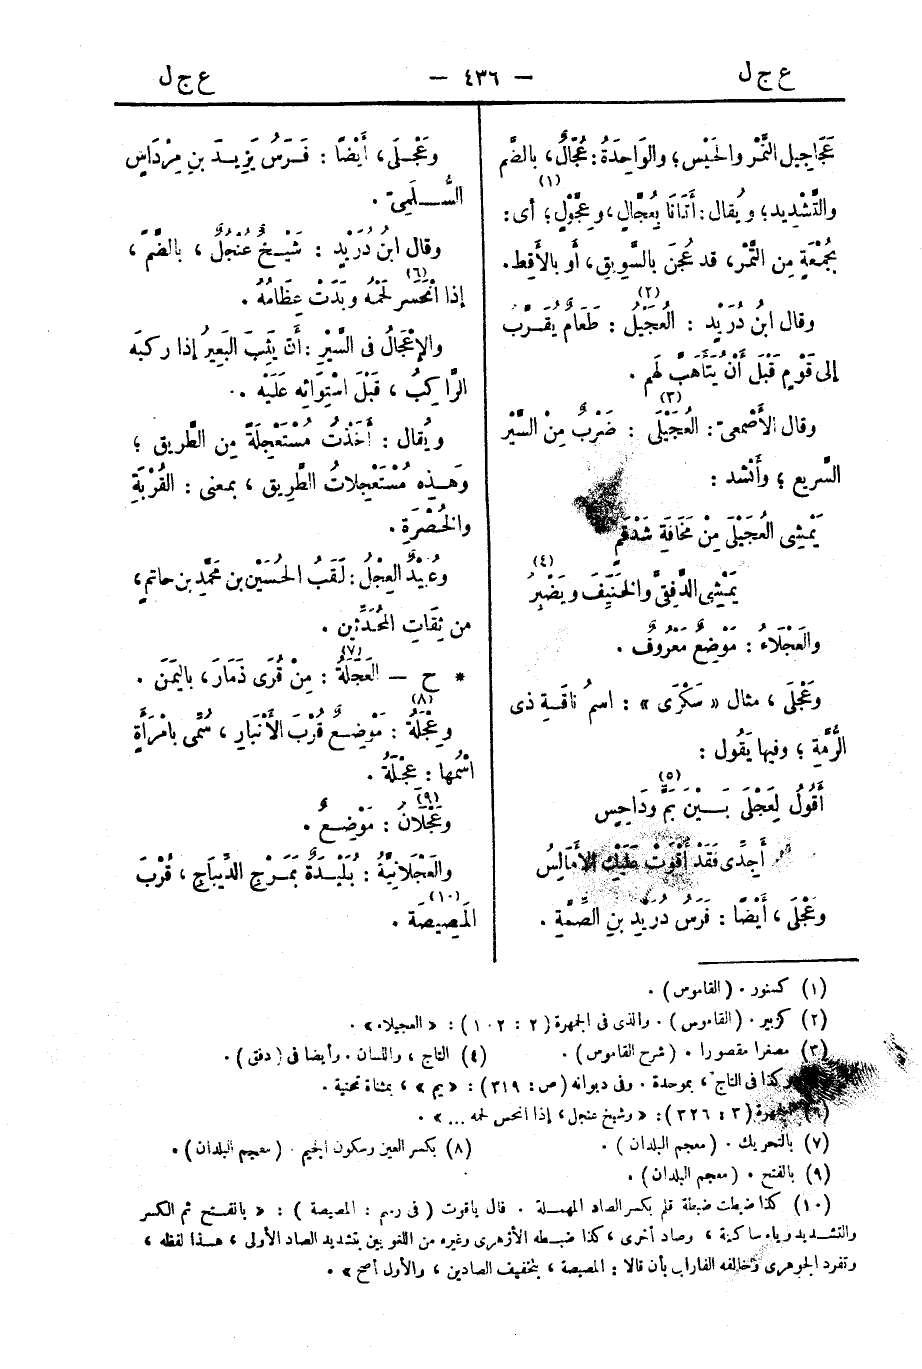 ع ج ل
— ٤٣٦ —
ع ج ل
عَجَاجِيل التَّمْر والحَيْس؛ والوَاحِدَةُ: عُجّالٌ، بالضَّم
والتَّشْدِيد؛ ويُقال: أَتَانَا بِعُجَّالٍ، وعِجَّوْلٍ(١)؛ أى:
بجُمْعَةٍ مِن التَّمْر، قد عُجِنَ بالسَّوِيق، أو بالأَقِط.
وقال ابنُ دُرَيْدٍ: العُجَيْلُ(٢): طَعَامٌ يُقَرَّب
إلى قَوْمٍ قَبْلَ أَنْ يُتَأَهَبَّ لَهم.
وقال الأَصْمعىّ: العُجَيْلَى(٣): ضَرْبٌ مِنْ السَّيْر
السَّريع؛ وأَنْشد:
يَمْشِى العُجَيْلَى مِنْ مَخَافَةِ شَدْقَمٍ
يَمْشِى الدِّفِقَّى والخَنِيفَ(٤) ويَضْبِرُ
والعَجْلَاءُ: مَوْضِعٌ مَعْرُوفٌ.
وعَجْلَى، مثال «سَكْرَى»: اسمُ ناقَةِ ذى
الرُّمَّةِ؛ وفيها يَقُول:
أَقُولُ لِعَجْلَى بَيْنَ بَمٍّ(٥) ودَاحِسٍ
أَجِدِّى فَقَدْ أَقْوَتْ عَلَيْكِ الأَمَالِسُ
وعَجْلَى، أَيْضًا: فَرَسُ دُرَيْدِ بنِ الصِّمَّةِ.
وعَجْلَى، أَيْضًا: فَرَسُ يَزِيدَ بنِ مِرْدَاسٍ
السُّلَمِىّ.
وقال ابنُ دُرَيْدٍ: شَيْخٌ عُنْجُلٌ، بالضَّمّ،
إذا انْحَسَر(٦) لَحْمُه وبَدَتْ عِظَامُهُ.
والإعْجَالُ فى السَّيْرِ: أَن يَثِبَ البَعِيرُ إذا ركبَه
الرَّاكِبُ، قَبْلَ اسْتِوَائِه عَلَيْه.
ويُقال: أَخَذْتُ مُسْتَعْجِلَةً مِن الطَّرِيق؛
وهَذِه مُسْتَعْجِلاتُ الطَّرِيق، بمعنى: القُرْبَةِ
والخُصْرَةِ.
وعُبَيْدٌ العِجْلُ: لَقَبُ الحُسَيْن بن محمَّدِ بن حاتمٍ،
من ثِقَاتِ المُحَدِّثين.
* ح — العَجَلَةُ(٧): مِنْ قُرَى ذَمَارَ، باليَمَن.
وعِجْلَةُ(٨): مَوْضِعٌ قُرْبَ الأَنْبَارِ، سُمِّى بامْرَأَةٍ
اسْمُها: عِجْلَةُ.
وعَجْلَانُ(٩): مَوْضِعٌ.
والعَجْلَانِيَّةُ: بُلَيْدَةٌ بَمَرْجِ الدِّيبَاجِ، قُرْبَ
المَصِيصَة(١٠).
(١) كسنور. (القاموس).
(٢) كزبير. (القاموس). والذى فى الجمهرة (٢: ١٠٢): «العجيلاء».
(٣) مصغرا مقصورا. (شرح القاموس). (٤) التاج، واللسان. وأيضا فى (دفق).
وكذا فى التاج، بموحدة. وفى ديوانه (ص: ٣١٩): «يم»، بمثناة تحتية.
(٦) الجمهرة (٣: ٣٢٦): «وشيخ عنجل، إذا انحس لحمه ...».
(٧) بالتحريك. (معجم البلدان). (٨) بكسر العين وسكون الجيم. (معجم البلدان).
(٩) بالفتح. (معجم البلدان).
(١٠) كذا ضبطت ضبطة قلم بكسر الصاد المهملة. قال ياقوت (فى رسم: المصيصة): «بالفتح ثم الكسر
والتشديد وياء ساكنة، وصاد أخرى، كذا ضبطه الأزهرى وغيره من اللغويين بتشديد الصاد الأولى، هذا لفظه،
وتفرد الجوهرى وخالفه الفارابى بأن قالا: المصيصة، بتخفيف الصادين، والأول أصح».